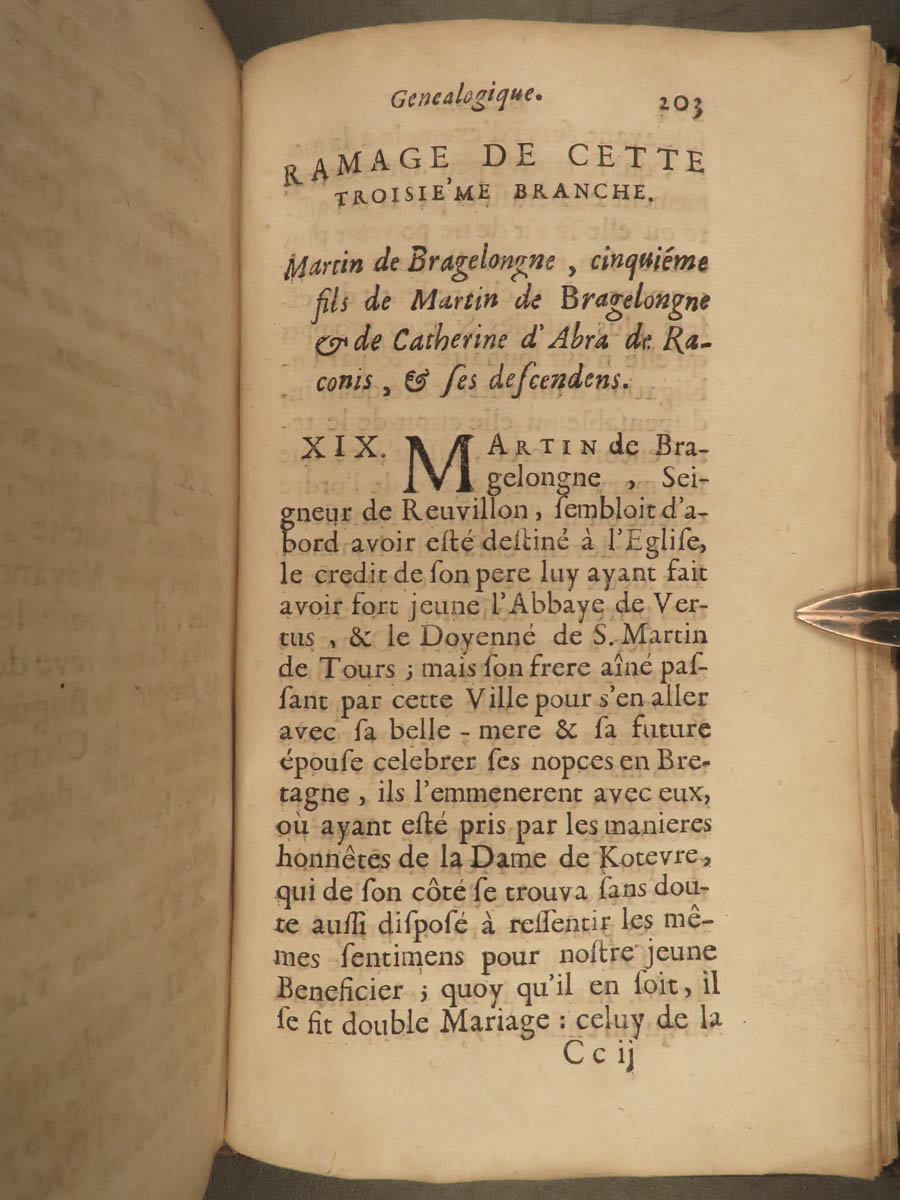 Genealogique. 203
RAMAGE DE CETTE
TROISIE'ME BRANCHE.
Martin de Bragelongne , cinquiéme
fils de Martin de Bragelongne
& de Catherine d'Abra de Ra-
conis , & ſes deſcendens.
XIX. MARTIN de Bra-
gelongne , Sei-
gneur de Reuvillon , ſembloit d'a-
bord avoir eſté deſtiné à l'Egliſe,
le credit de ſon pere luy ayant fait
avoir fort jeune l'Abbaye de Ver-
tus , & le Doyenné de S. Martin
de Tours ; mais ſon frere aîné paſ-
ſant par cette Ville pour s'en aller
avec ſa belle-mere & ſa future
épouſe celebrer ſes nopces en Bre-
tagne , ils l'emmenerent avec eux,
où ayant eſté pris par les manieres
honnêtes de la Dame de Kotevre,
qui de ſon côté ſe trouva ſans dou-
te auſſi diſpoſé à reſſentir les mê-
mes ſentimens pour noſtre jeune
Beneficier ; quoy qu'il en ſoit, il
ſe fit double Mariage : celuy de la
C c ij